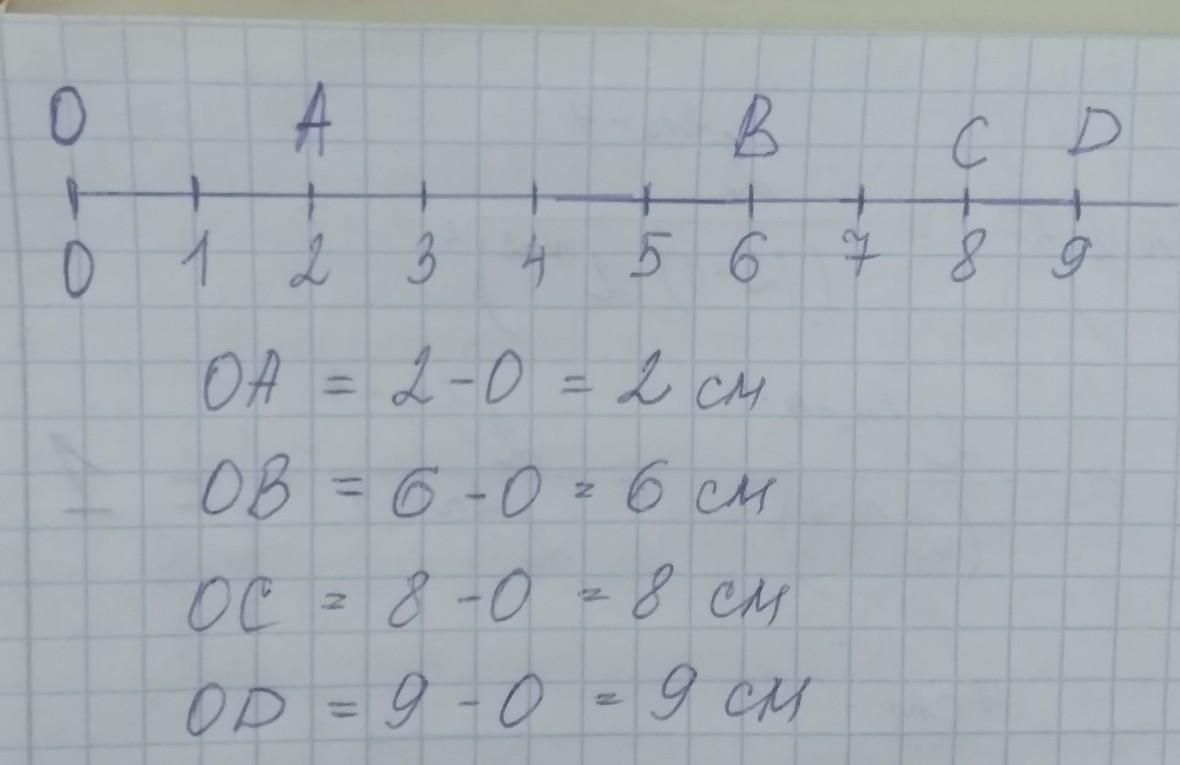 O A B C D
0 1 2 3 4 5 6 7 8 9
OA = 2 - 0 = 2 см
OB = 6 - 0 = 6 см
OC = 8 - 0 = 8 см
OD = 9 - 0 = 9 см